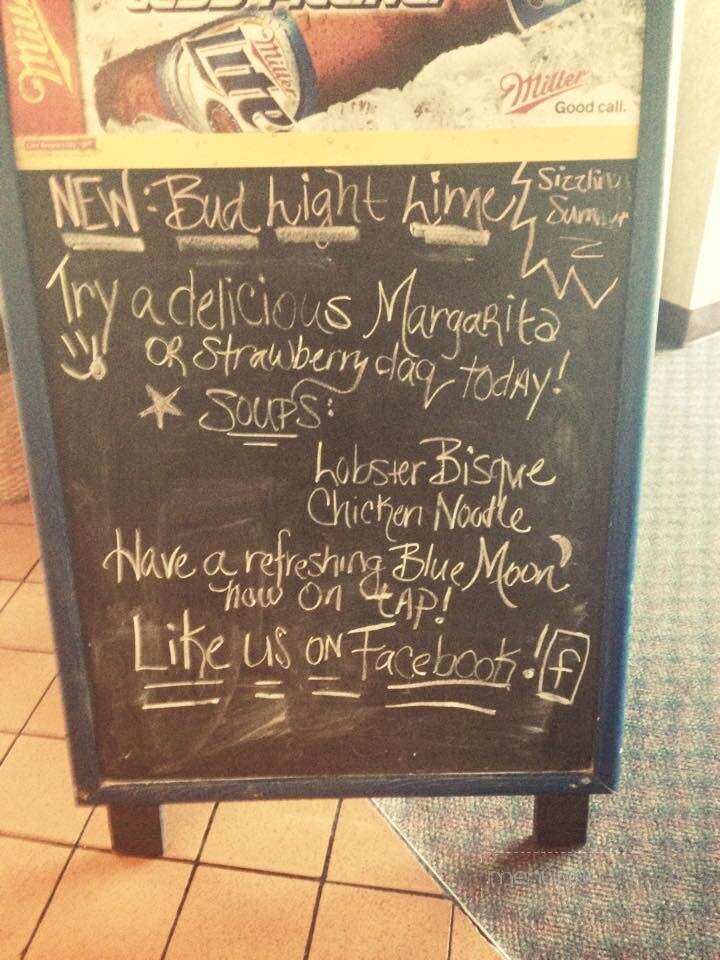 Miller
Lite
Miller
Miller
Good call.
NEW: Bud Light Lime
Sizzling
Summer
Try a delicious Margarita
OR Strawberry daq today!
SOUPS:
Lobster Bisque
Chicken Noodle
Have a refreshing Blue Moon
now on tAP!
Like us on Facebook! f